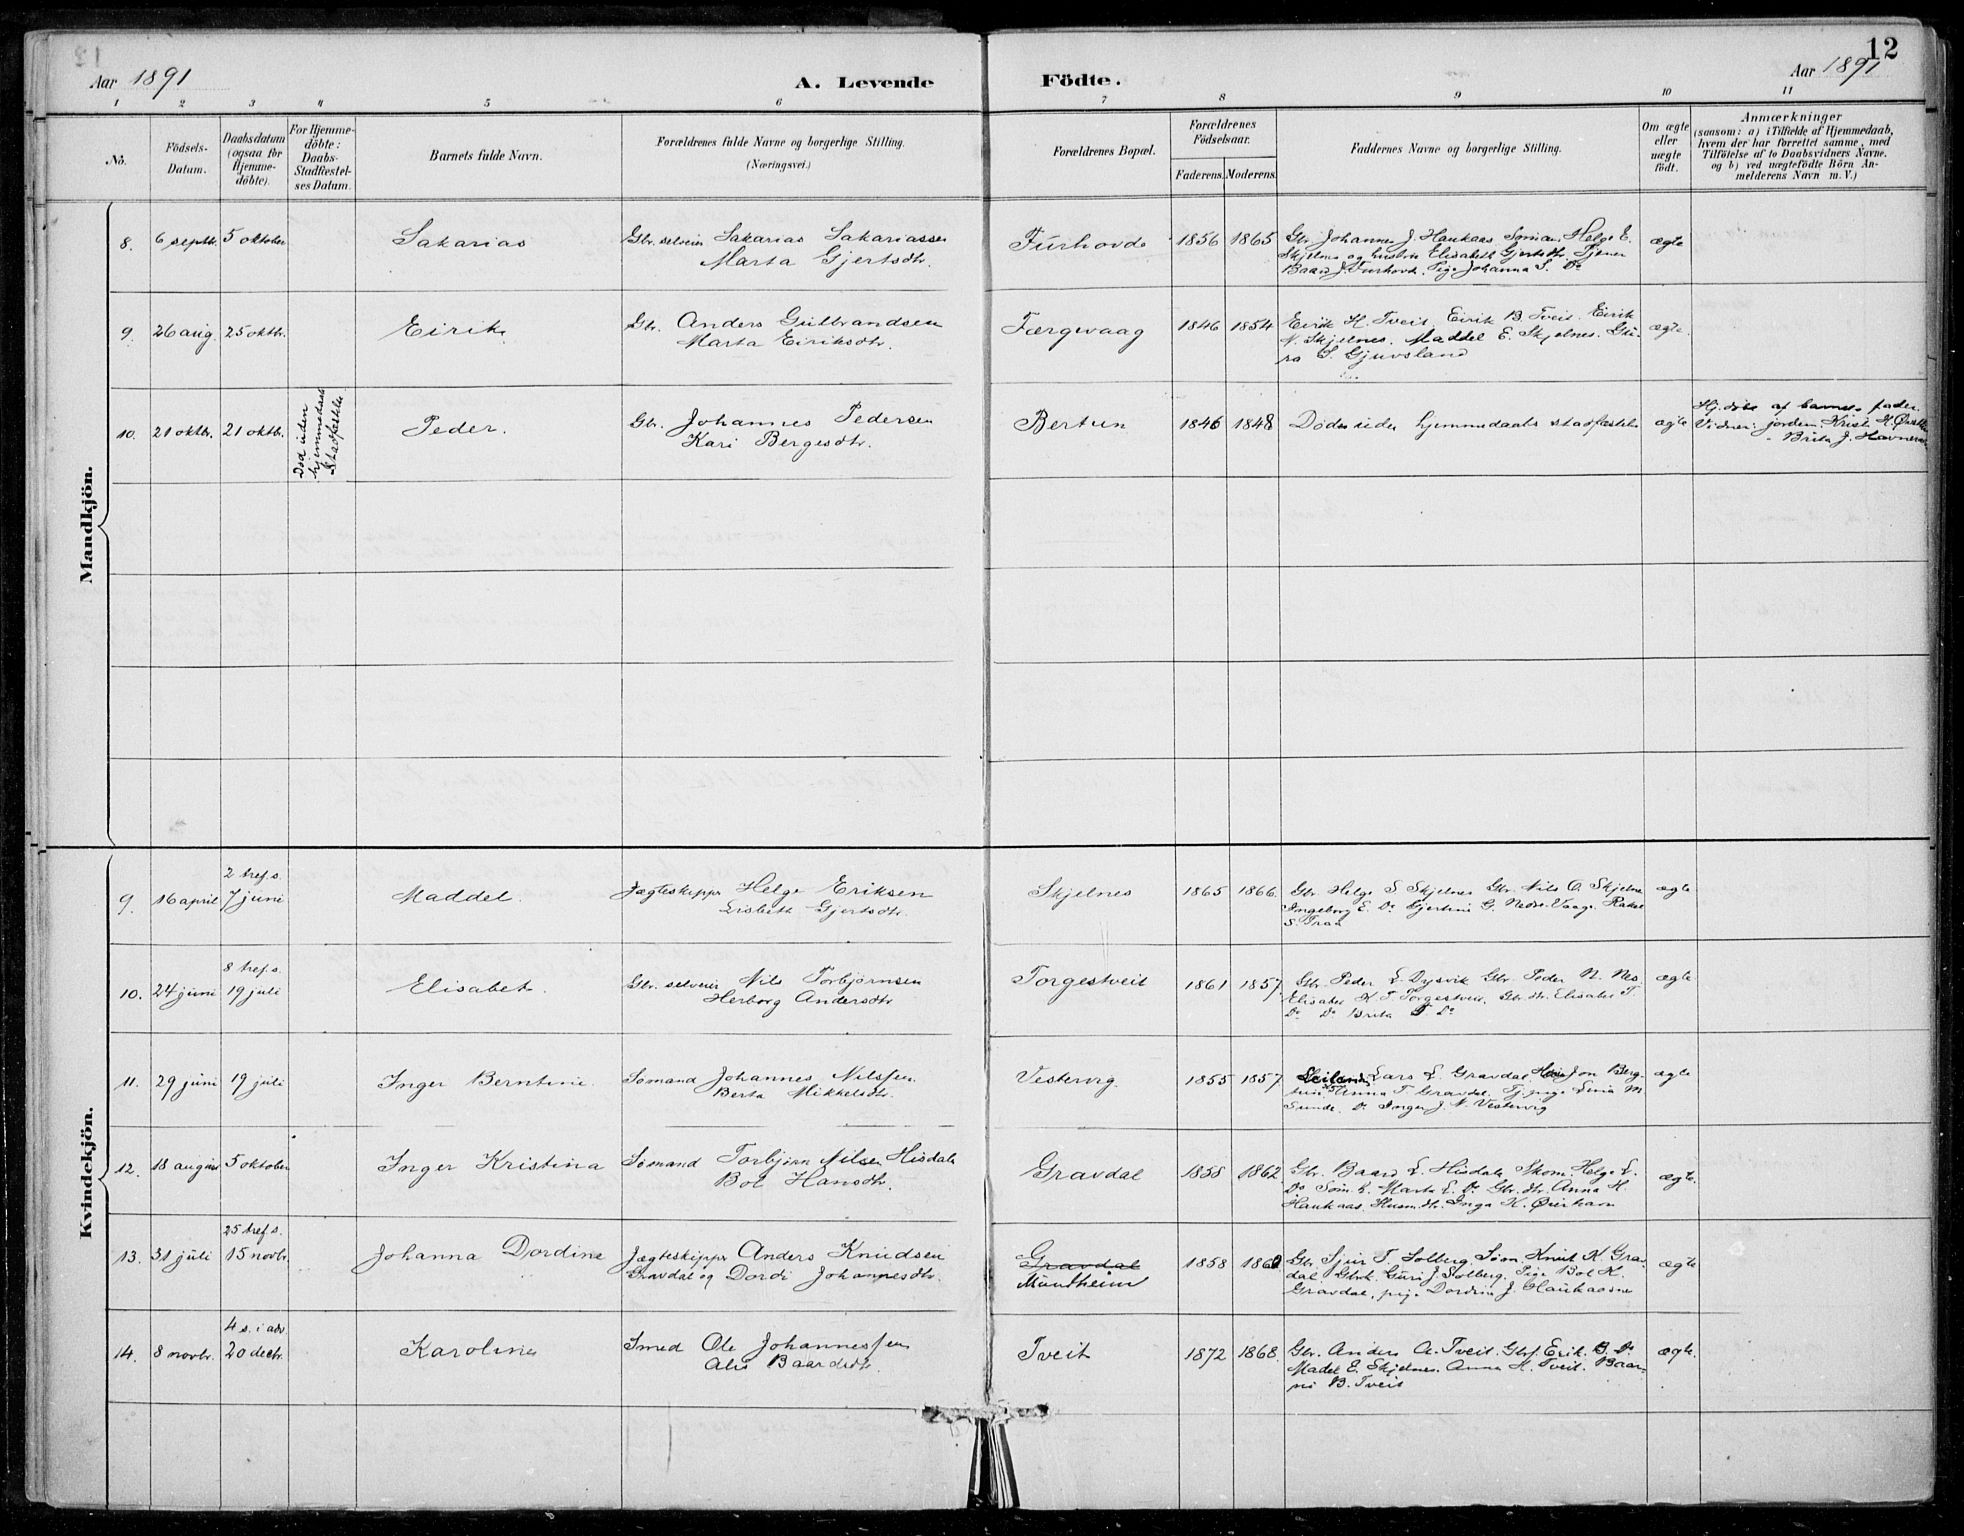 12
Aar 1891 A. Levende Födte. Aar 1891
1 2 3 4 5 6 7 8 9 10 11
No.
Födsels-Datum.
Daabsdatum (ogsaa for Hjemme-döbte).
For Hjemme-döbte: Daabs-Stadfæstel-ses Datum.
Barnets fulde Navn.
Forældrenes fulde Navne og borgerlige Stilling.
(Næringsvei.)
Forældrenes Bopæl.
Forældrenes Födselsaar.
Faderens. Moderens.
Faddernes Navne og borgerlige Stilling.
Om ægte eller uægte födt.
Anmærkninger
(saasom: a) i Tilfælde af Hjemmedaab,
hvem der har forrettet samme, med
Tilföielse af to Daabsvidners Navne.
og b) ved uægtefödte Börn An-
melderens Navn m. V.)
Mandkjön.
8. 6 septbr. 5 oktober Sakarias Gbr. selveier Sakarias Sakariassen
Marta Gjertsdtr.
Furhovde 1856 1865 Gbr. Johannes J. Haukaas Søman Helge E.
Skjelnes og hustru Elisabeth Gjertsdtr. Tjener
Baard J. Furhovde. Pige Johanna S. Do
ægte
9. 26 aug. 25 oktbr. Eirik Gbr. Anders Gulbrandsen
Marta Eiriksdtr.
Færgevaag 1846 1854 Eirik H. Tveit. Eirik B. Tveit. Eirik
N. Skjelnes. Maddel E. Skjelnes. Gu-
ro S. Gjuvsland
ægte
10. 21 oktbr. 21 oktbr. Død uden
hjemmedaabs
Stadfæstelse
Peder. Gbr. Johannes Pedersen
Kari Bergesdtr.
Bertun 1846 1848 Døde uden hjemmedaabs stadfæstelse ægte
Hj. døbt af barnets fader.
Vidner: jordem. Kristi K.
" Brita J.
Kvindekjön.
9. 16 april 2 tref. s.
7 juni
Maddel. Jægteskipper Helge Eriksen
Lisbeth Gjertsdtr.
Skjelnes 1865 1866 Gbr. Helge S. Skjelnes Gbr. Nils O. Skjelne
Ingeborg E. Do Gjertine G. Nedre-Vaage. Rakel
S. Traa
ægte
10. 24 juni 8 tref. s.
19 juli
Elisabet. Gbr. selveier Nils Torbjørnsen
Herborg Andersdtr.
Torgestveit 1861 1857 Gbr. Peder L. Dysvik Gbr. Peder N. Nes
Elisabet K. T. Torgestveit. Gbr. dtr. Elisabet T.
Do Do Brita T Do
ægte
11. 29 juni 19 juli Inger Berntine. Sømand Johannes Nilssen
Berta Mikkelsdtr.
Vestervig 1855 1857 Lars L. Gravdal, Jon Berg-
tun Anna T. Gravdal. Tj. pige Lina M
Sunde. Do Inger J. N. Vestervig
ægte
12. 18 august 5 oktober Inger Kristina Sømand Torbjørn Nilsen Hisdal
Bol Hansdtr.
Gravdal 1858 1862 Gbr. Baard L. Hisdal, Skom. Helge L.
Do Søm. k. Marta L. Do Gbr. dtr. Anna H.
Haukaas, Husm. dtr. Inga K. Øierhavn
ægte.
13. 31 juli 25 tref. s.
15 novbr.
Johanna Dordine Jægteskipper Anders Knudsen
Gravdal og Dordi Johannesdtr.
Gravdal
Mundheim
1858 1860 Gbr. Sjur T. Solberg, Søm. Knut K. Gra-
dal, Gbrk. Guri J. Solberg. Pige Bol K.
Gravdal, pige Dordin J. Haukaasne
ægte
14. 8 novbr. 4 s. i adv
20 decbr.
Karoline Smed Ole Johannessen
Alis Baardsdtr.
Tveit 1872 1868. Gbr. Anders A. Tveit. Gbrf. Erik B. Do
Madel E. Skjelnes. Anna H. Tveit. Baar-
ni B. Tveit
ægte.